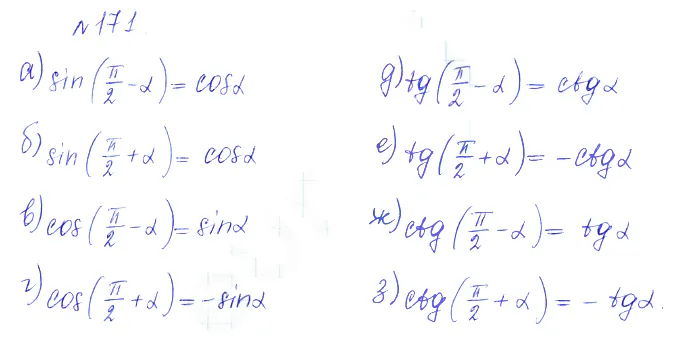 №171.
а) sin(π/2 - α) = cosα
б) sin(π/2 + α) = cosα
в) cos(π/2 - α) = sinα
г) cos(π/2 + α) = -sinα
д) tg(π/2 - α) = ctgα
е) tg(π/2 + α) = -ctgα
ж) ctg(π/2 - α) = tgα
з) ctg(π/2 + α) = -tgα.